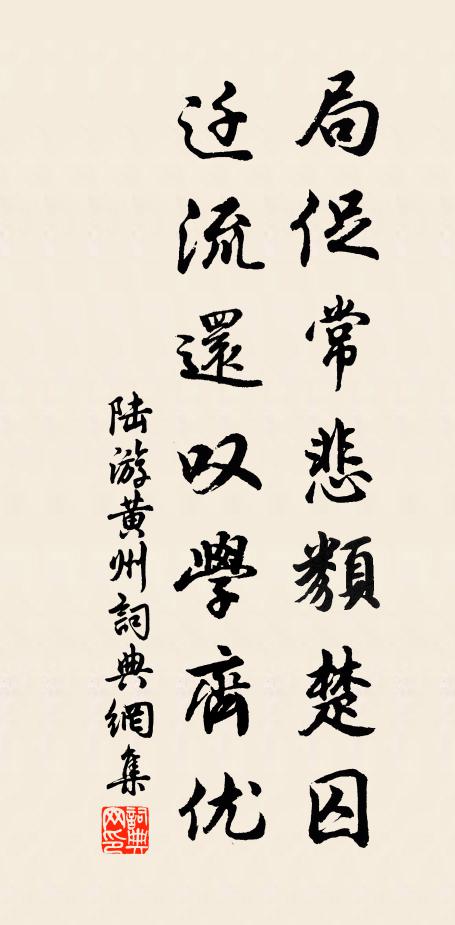 局促常悲類楚囚
迁流還叹學齊优
陆游黄州詞典網集
詞典网印